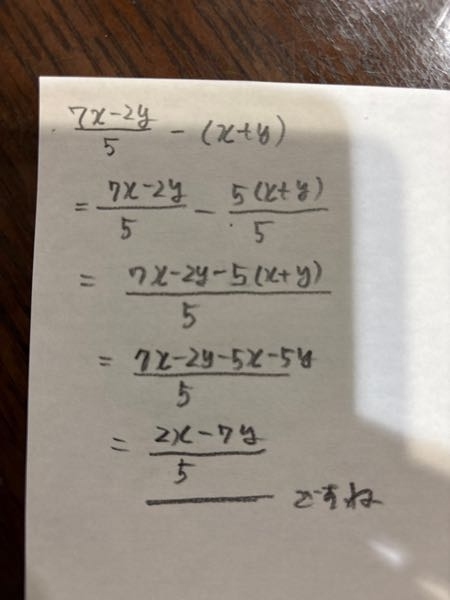 (7x-2y)/5 - (x+y)
= (7x-2y)/5 - 5(x+y)/5
= (7x-2y-5(x+y))/5
= (7x-2y-5x-5y)/5
= (2x-7y)/5
ですね